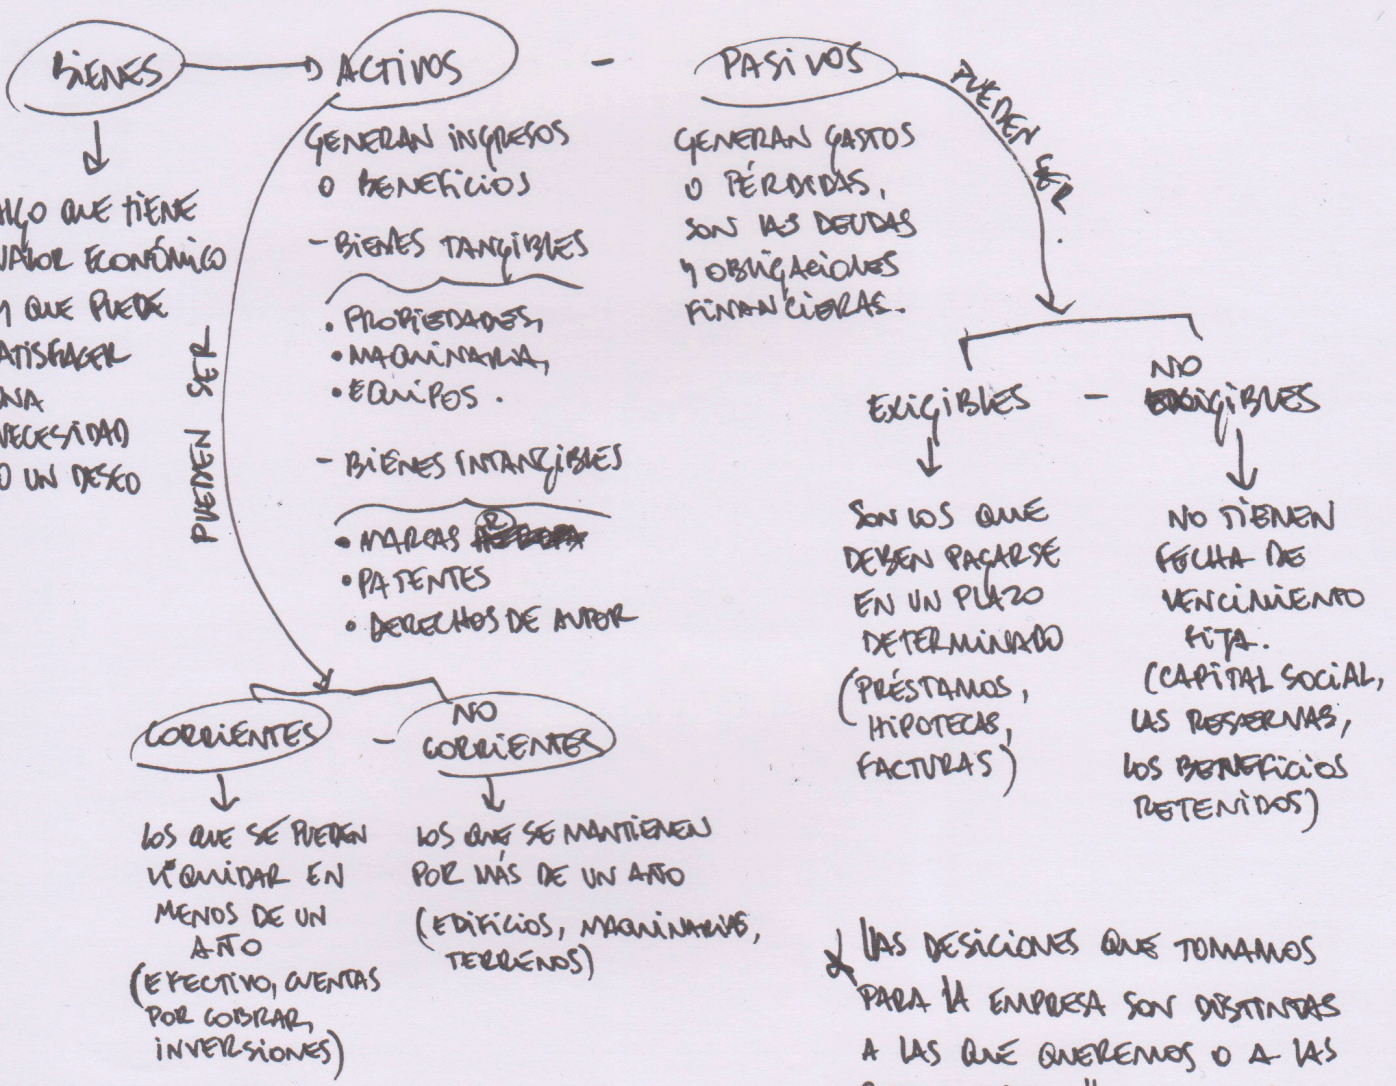 BIENES
ALGO QUE TIENE
VALOR ECONÓMICO
Y QUE PUEDE
SATISFACER
UNA
NECESIDAD
O UN DESEO
ACTIVOS
GENERAN INGRESOS
O BENEFICIOS
- BIENES TANGIBLES
• PROPIEDADES,
• MAQUINARIA,
• EQUIPOS.
- BIENES INTANGIBLES
• MARCAS R
• PATENTES
• DERECHOS DE AUTOR
PUEDEN SER
CORRIENTES
LOS QUE SE PUEDEN
LIQUIDAR EN
MENOS DE UN
AÑO
(EFECTIVO, CUENTAS
POR COBRAR,
INVERSIONES)
-
NO
CORRIENTES
LOS QUE SE MANTIENEN
POR MÁS DE UN AÑO
(EDIFICIOS, MAQUINARIAS,
TERRENOS)
-
PASIVOS
GENERAN GASTOS
O PÉRDIDAS,
SON LAS DEUDAS
Y OBLIGACIONES
FINANCIERAS.
PUEDEN SER
EXIGIBLES
SON LOS QUE
DEBEN PAGARSE
EN UN PLAZO
DETERMINADO
(PRÉSTAMOS,
HIPOTECAS,
FACTURAS)
-
NO
EXIGIBLES
NO TIENEN
FECHA DE
VENCIMIENTO
FIJA.
(CAPITAL SOCIAL,
LAS RESERVAS,
LOS BENEFICIOS
RETENIDOS)
LAS DESICIONES QUE TOMAMOS
PARA LA EMPRESA SON DISTINTAS
A LAS QUE QUEREMOS O A LAS